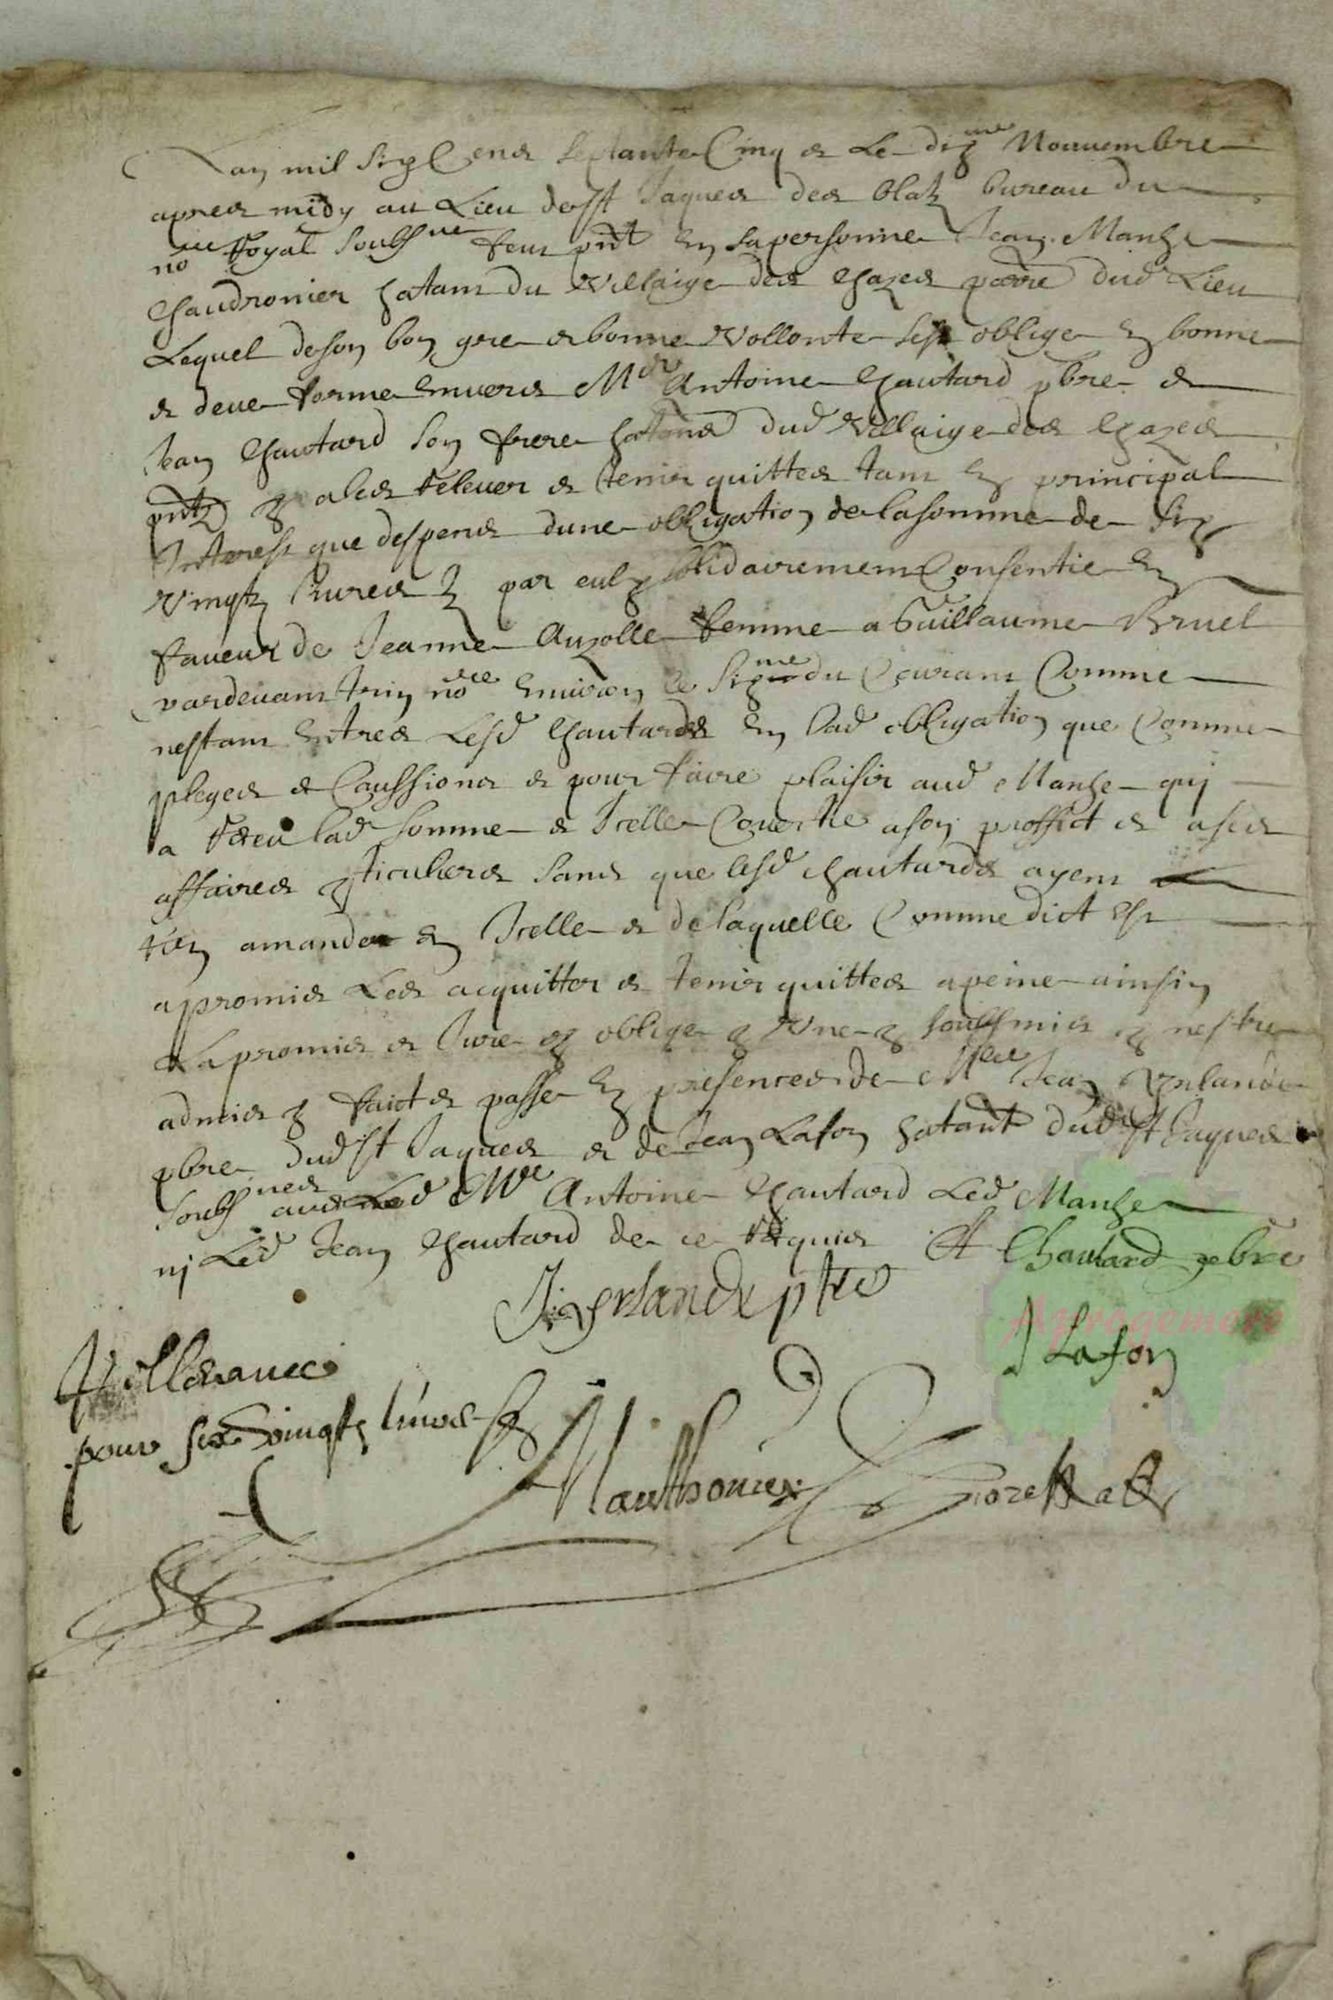 Lan mil six Cens Septante Cinq & Le dixme Nouvembre
apres midy au Lieu de st Jaques des blatz bureau du
nore Royal soubsne feut pnt En sa personne Jean Manhe
Chaudronier hatant du Villaige des Chazes paroe dud Lieu
Lequel de son bon gre & bonne Vollonte sest oblige En bonne
& deue forme Envers Mre Antoine Chautard pbre &
Jean Chautard son frere hatans dud Villaige des Chazes
pntz & a les Relever & tenir quittes tant En principal
Interest que despens dune obligation de la somme de six
Vingtz livres par eulx solidairement Consentie En
faveur de Jeanne Auzolle femme a Guillaume Bruel
pardevant moy nore Environ le sixme du Courant Comme
nestant Entres Lesd Chautards En lad obligation que Comme
pleges & Caussions & pour faire plaisir aud Manhe quj
a Receu lad somme & Icelle Convertie a son proffict & a ses
affaires particulieres sans que lesd Chautards ayent
rien amande En Icelle & de laquelle Comme dict Est
a promis Les acquitter & tenir quittes a peine ainsin
La promis & Jure & oblige & soubsmis & nestre
admis & faict & passe En presences de Mre Jean Verlande
pbre dud st Jaques & de Jean Lafon hatant dud st Jaques
soubsnes avec Led Mre Antoine Chautard Led Manhe
nj Led Jean Chautard de ce Requis A Chautard pebre
J Verlande ptre
J Lafon
pour six vingtz livres
Manthonier